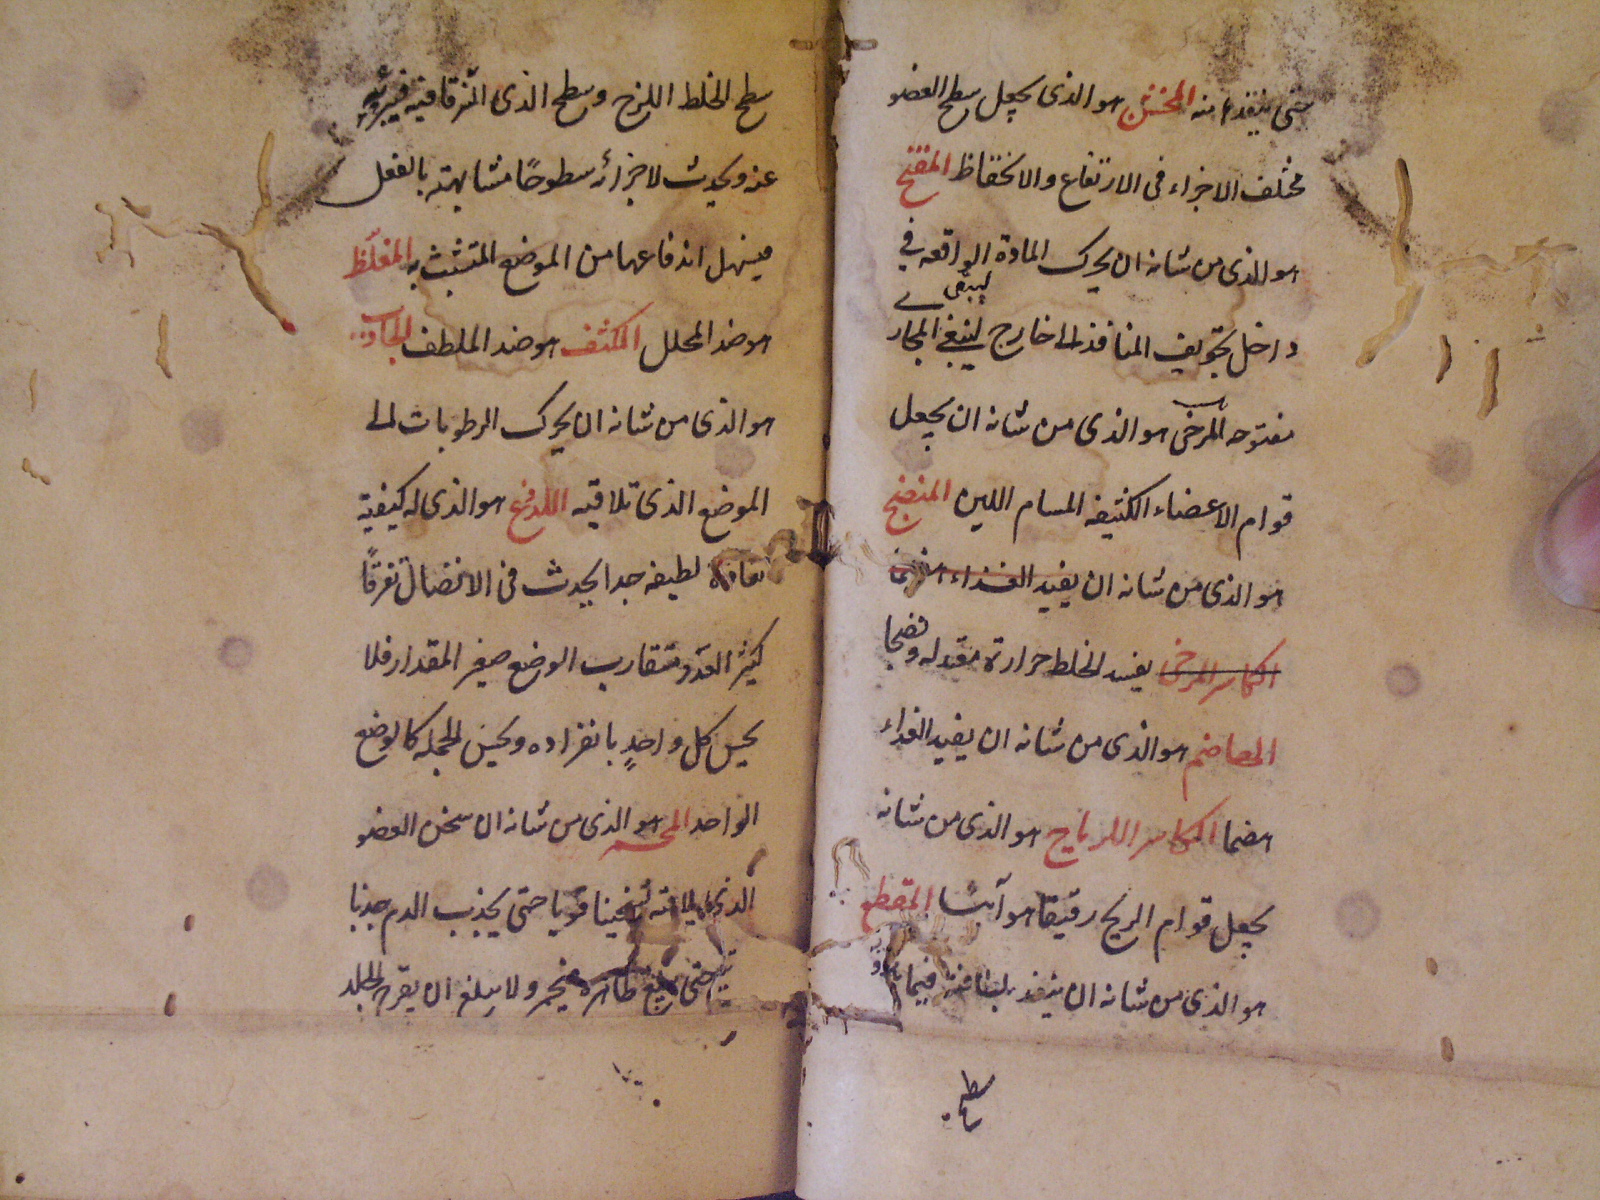 حتى ينفد منه المخشن هو الذى يجعل سطح العضو
مختلف الاجزاء فى الارتفاع والانخفاظ المفتح
هو الذى من شانه ان يحرك المادة الواقعه في
ليبقى
داخل تجويف المنافذ الى خارج لينبغى المجار
مفتوحه المرخى هو الذى من شانه ان يجعل
قوام الاعضاء الكثيفه المسام اللين المنضج
هو الذى من شانه ان يفيد الغذاء هضما
الكاسر المرخى يفيد الخلط حرارة معتدله ونضجا
الهاضم هو الذى من شانه ان يفيد الغذاء
هضما الكاسر اللرياح هو الذى من شانه
يجعل قوام الريح رقيقا هوآئيا المقطع
هو الذى من شانه ان ينفذ بلطافته فيما
سطح
سطح الخلط اللزج وسطح الذى التزقا فيه فيبرؤه
عنه ويحدث لاجزائه سطوحًا متشابهته بالفعل
فيسهل اندفاعها من الموضع المتشبث به المغلّظ
هو ضد المحلل المكثف هو ضد الملطف الجاذب
هو الذى من شانه ان يحرك الرطوبات الى
الموضع الذى تلاقيه اللاذع هو الذى له كيفية
نفاذة لطيفه جدا يحدث فى الاتصال تفرقًا
كثير العدد متقارب الوضع صغير المقدار فلا
يحس كل واحدٍ بانفراده ويحس الجمله كالوضع
الواحد المحمر هو الذى من شانه ان سخن العضو
الذى يلاقيه تسخينا قويا حتى يجذب الدم جذبا
حتى يبلغ ظاهره فيحمر ولا يبلغ ان يقرح الجلد